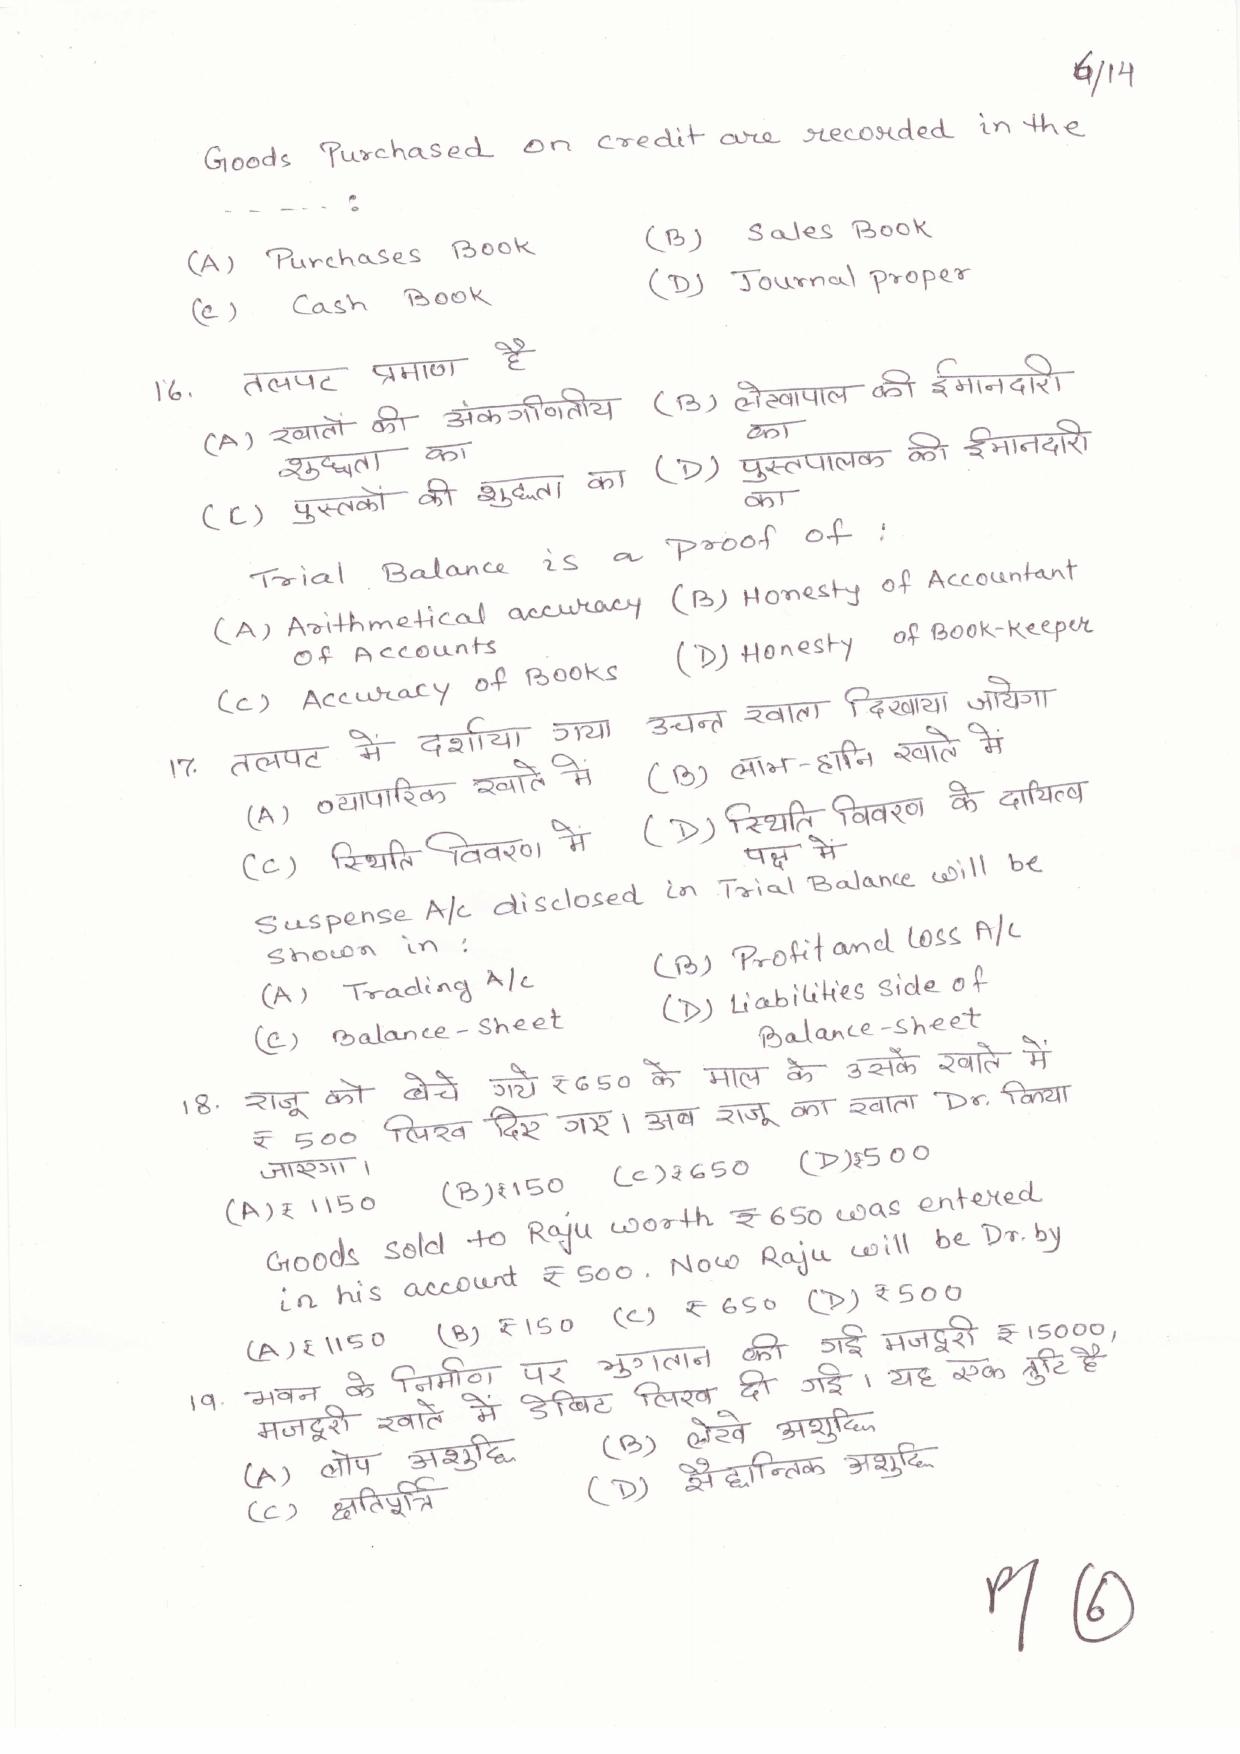 6/14
Goods Purchased on credit are recorded in the
------ :
(A) Purchases Book (B) Sales Book
(C) Cash Book (D) Journal proper
16. तलपट प्रमाण है
(A) खातों की अंकगणितीय (B) लेखापाल की ईमानदारी
शुद्धता का का
(C) पुस्तकों की शुद्धता का (D) पुस्तपालक की ईमानदारी
का
Trial Balance is a proof of :
(A) Arithmetical accuracy (B) Honesty of Accountant
of Accounts
(C) Accuracy of Books (D) Honesty of Book-keeper
17. तलपट में दर्शाया गया उचन्त खाता दिखाया जायेगा
(A) व्यापारिक खाते में (B) लाभ-हानि खाते में
(C) स्थिति विवरण में (D) स्थिति विवरण के दायित्व
पक्ष में
Suspense A/c disclosed in Trial Balance will be
shown in :
(A) Trading A/c (B) Profit and Loss A/c
(C) Balance-Sheet (D) Liabilities side of
Balance-sheet
18. राजू को बेचे गये ₹650 के माल के उसके खाते में
₹ 500 लिख दिए गए। अब राजू का खाता Dr. किया
जाएगा।
(A) ₹ 1150 (B) ₹150 (C) ₹650 (D) ₹500
Goods sold to Raju worth ₹ 650 was entered
in his account ₹ 500. Now Raju will be Dr. by
(A) ₹ 1150 (B) ₹ 150 (C) ₹ 650 (D) ₹ 500
19. भवन के निर्माण पर भुगतान की गई मजदूरी ₹ 15000,
मजदूरी खाते में डेबिट लिख दी गई। यह एक त्रुटि है
(A) लोप अशुद्धि (B) लेखे अशुद्धि
(C) क्षतिपूर्त्ति (D) सैद्धान्तिक अशुद्धि
6